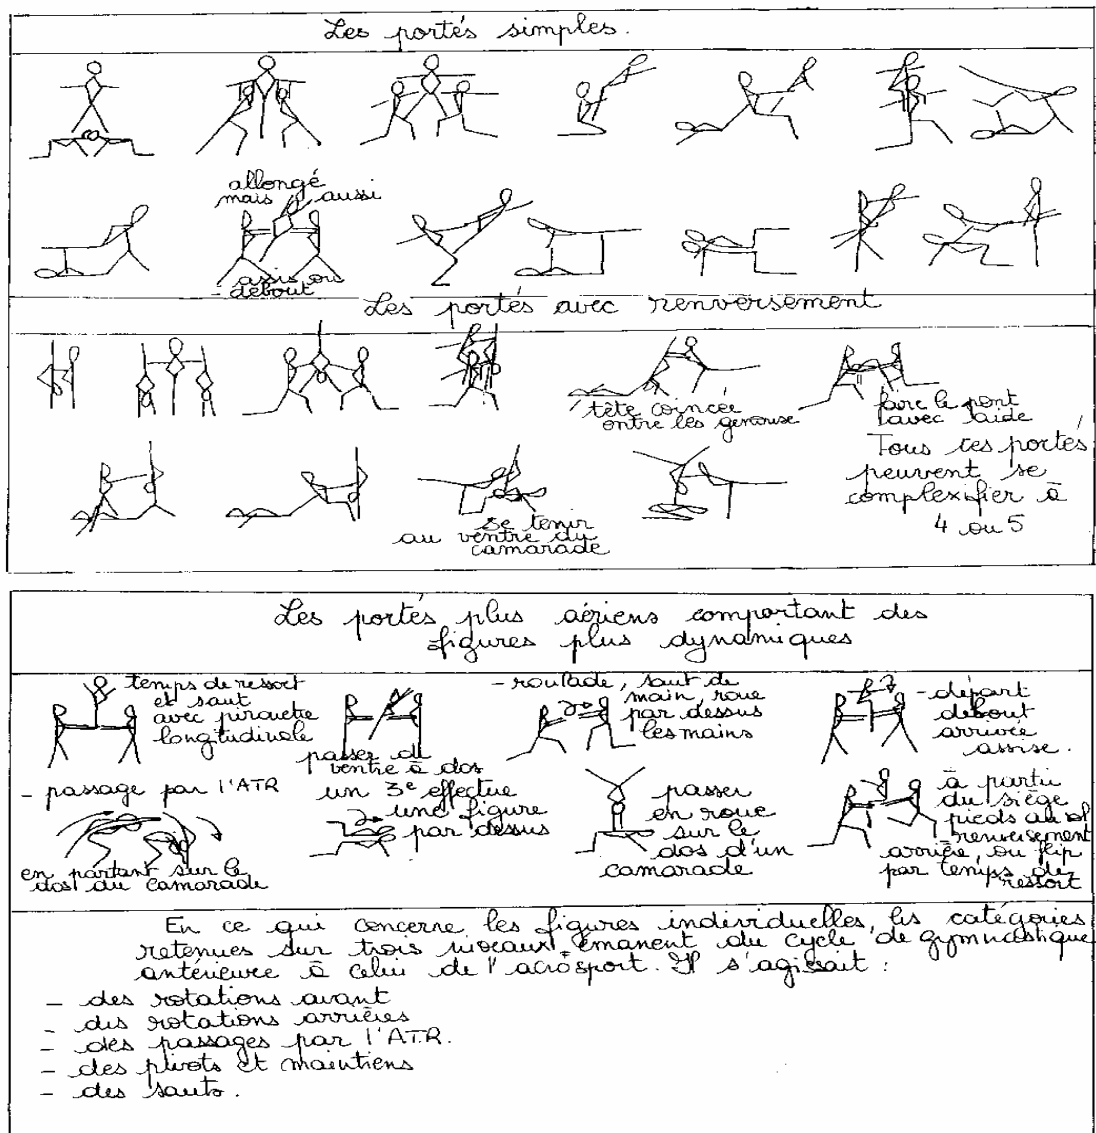 Les portés simples.
allongé
mais aussi
assis ou
- debout
Les portés avec renversement
tête coincée
entre les genoux
faire le pont
avec l'aide
Tous ces portés
peuvent se
complexifier à
4 ou 5
se tenir
au ventre du
camarade
Les portés plus aériens comportant des
figures plus dynamiques
temps de ressort
et saut
avec pirouette
longitudinale
passer de
ventre à dos
- roulade, saut de
main, roue
par dessus
les mains
- départ
debout
arrivée
assise.
- passage par l'ATR
en partant sur le
dos du camarade
un 3e effectue
une figure
par dessus
passer
en roue
sur le
dos d'un
camarade
à partir
du siège
pieds au sol
renversement
arrière, ou flip
par temps de
ressort
En ce qui concerne les figures individuelles, les catégories
retenues sur trois niveaux émanent du cycle de gymnastique
antérieure à celui de l'acrosport. Il s'agissait :
- des rotations avant
- des rotations arrières
- des passages par l'ATR.
- des pivots et maintiens
- des sauts.